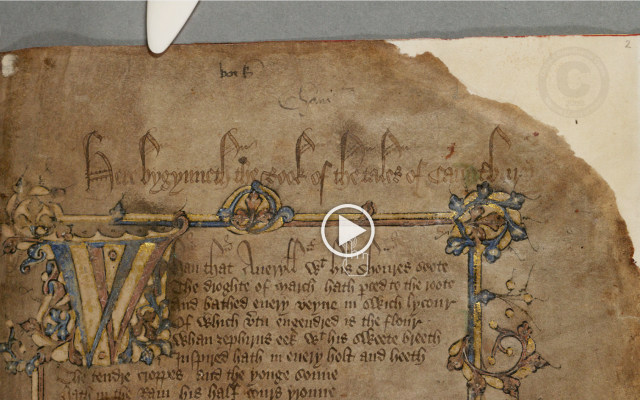 2
Here bygynneth the Book of the tales of
Whan that Aueryll wt his shoures soote
The droghte of march hath pced to the roote
And bathed euery veyne in swich lycour
Of which vtu engendred is the flour
Whan zephirus eek wt his sweete breeth
Inspired hath in euery holt and heeth
The tendre croppes and the yonge sonne
Hath in the Ram his half cours yronne